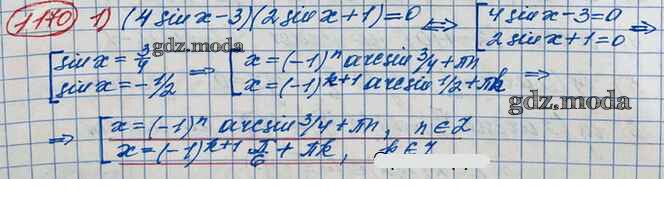 1170 1) (4 sin x - 3)(2 sin x + 1) = 0 <=> [4 sin x - 3 = 0 =>
2 sin x + 1 = 0
gdz.moda
[sin x = 3/4 => [x = (-1)^n arcsin 3/4 + πn
sin x = -1/2 x = (-1)^{k+1} arcsin 1/2 + πk =>
gdz.moda
=> [x = (-1)^n arcsin 3/4 + πn, n ∈ Z
x = (-1)^{k+1} π/6 + πk,